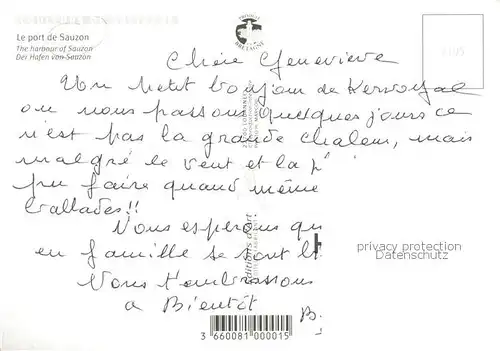 Le port de Sauzon
The harbour of Sauzon
Der Hafen von Sauzon
PRODUIT
BRETAGNE
Chère Geneviève
Un petit bonjour de Kervoyal
où nous passons quelques jours ce
n'est pas la grande chaleur, mais
malgré le vent et la p
pu faire quand même
ballades!!
Nous espérons qu
en famille se sont
Nous t'embrassons
à Bientôt B.
Editions d'art
privacy protection
Datenschutz
3 660081 000015